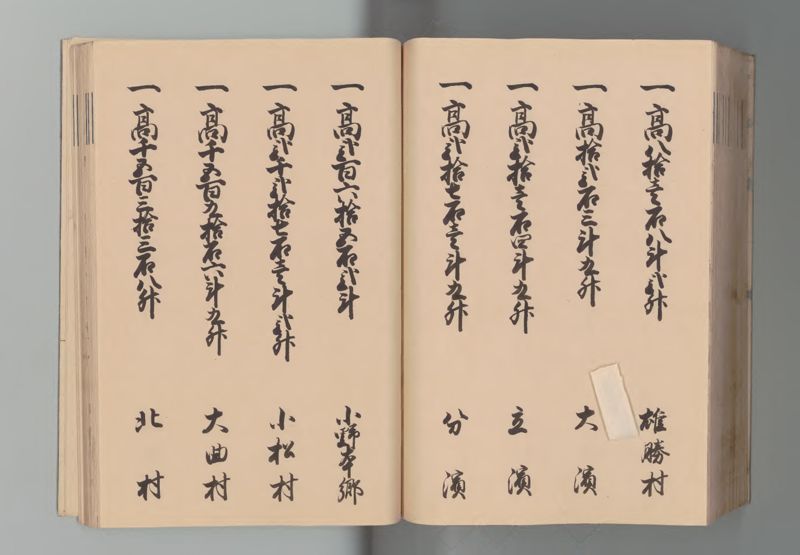 一高八拾壱石八斗弐升 雄勝村
一高拾弐石三斗五升 大濱
一高弐拾壱石四斗五升 立濱
一高弐拾七石壱斗五升 分濱
一高弐百六拾五石弐斗 小野本郷
一高弐千弐拾七石壱斗弐升 小松村
一高千五百九拾石六斗九升 大曲村
一高千五百三拾三石八升 北村